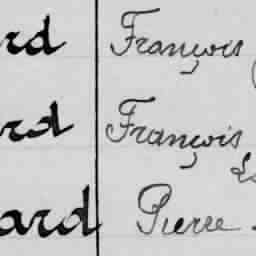 rd François
rd François
ard Pierre